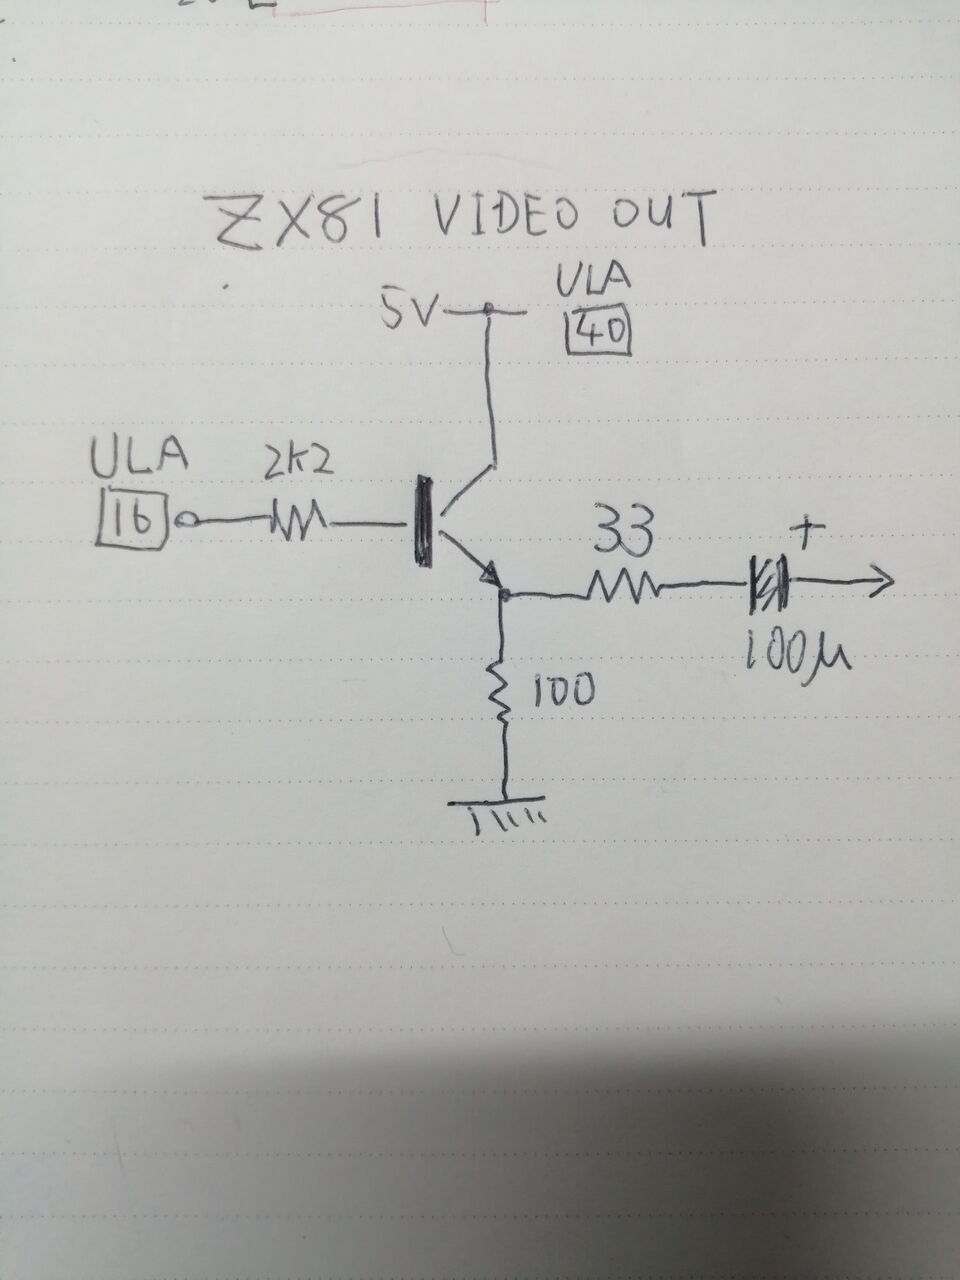 ZX81 VIDEO OUT
ULA
5V
40
ULA
2K2
16
33
+
100μ
100